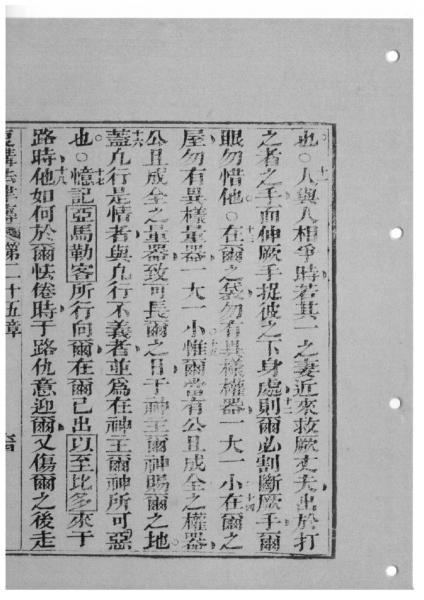 也。○十一人與人相爭時若其一之妻近來救厥丈夫出於打
之者之手而伸厥手捉彼之下身處十二則爾必割斷厥手爾
眼勿惜他○十三在爾之袋勿有異樣權器一大一小十四在爾之
屋勿有異樣量器一大一小十五惟爾當有公且成全之權器
公且成全之量器致可長爾之日于神主爾神賜爾之地
十六蓋凡行是情者與凡行不義者並為在神主爾神所可惡
也。○十七憶記亞馬勒客所行向爾在爾已出以至比多來于
路時十八他如何於爾怯倦時于路仇意迎爾又傷爾之後走
復講法律傳 第二十五章